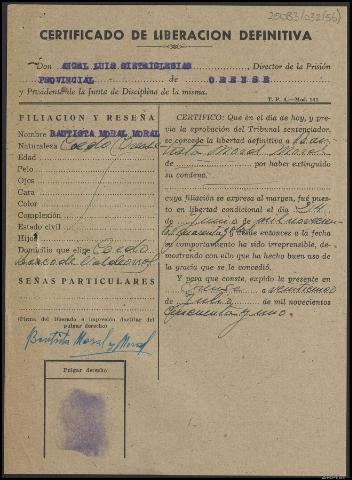 25083/032(56)
CERTIFICADO DE LIBERACION DEFINITIVA
Don ANGEL LUIS SISTEIGLESIAS, Director de la Prisión
PROVINCIAL de ORENSE
y Presidente de la Junta de Disciplina de la misma.
T. P. A.—Mod. 141
FILIACION Y RESEÑA
Nombre BAUTISTA MORAL MORAL
Naturaleza
Edad
Pelo
Ojos
Cara
Color
Complexión
Estado civil
Hijos
Domicilio que elige
Barco de Valdeorras
SEÑAS PARTICULARES
(Firma del liberado e impresión dactilar del
pulgar derecho)
Bautista Moral y Moral
Pulgar derecho
CERTIFICO: Que en el día de hoy, y previa
la aprobación del Tribunal sentenciador,
se concede la libertad definitiva a Bau-
tista Moral Moral
de por haber extinguido
su condena.
cuya filiación se expresa al margen, fué puesto
en libertad condicional el día 24
de Junio de mil novecien-
tos cuarenta y desde entonces a la fecha
su comportamiento ha sido irreprensible, de-
mostrando con ello que ha hecho buen uso de
la gracia que se le concedió.
Y para que conste, expido la presente en
Orense a veinticinco
de Julio
de mil novecientos
cincuenta y uno.